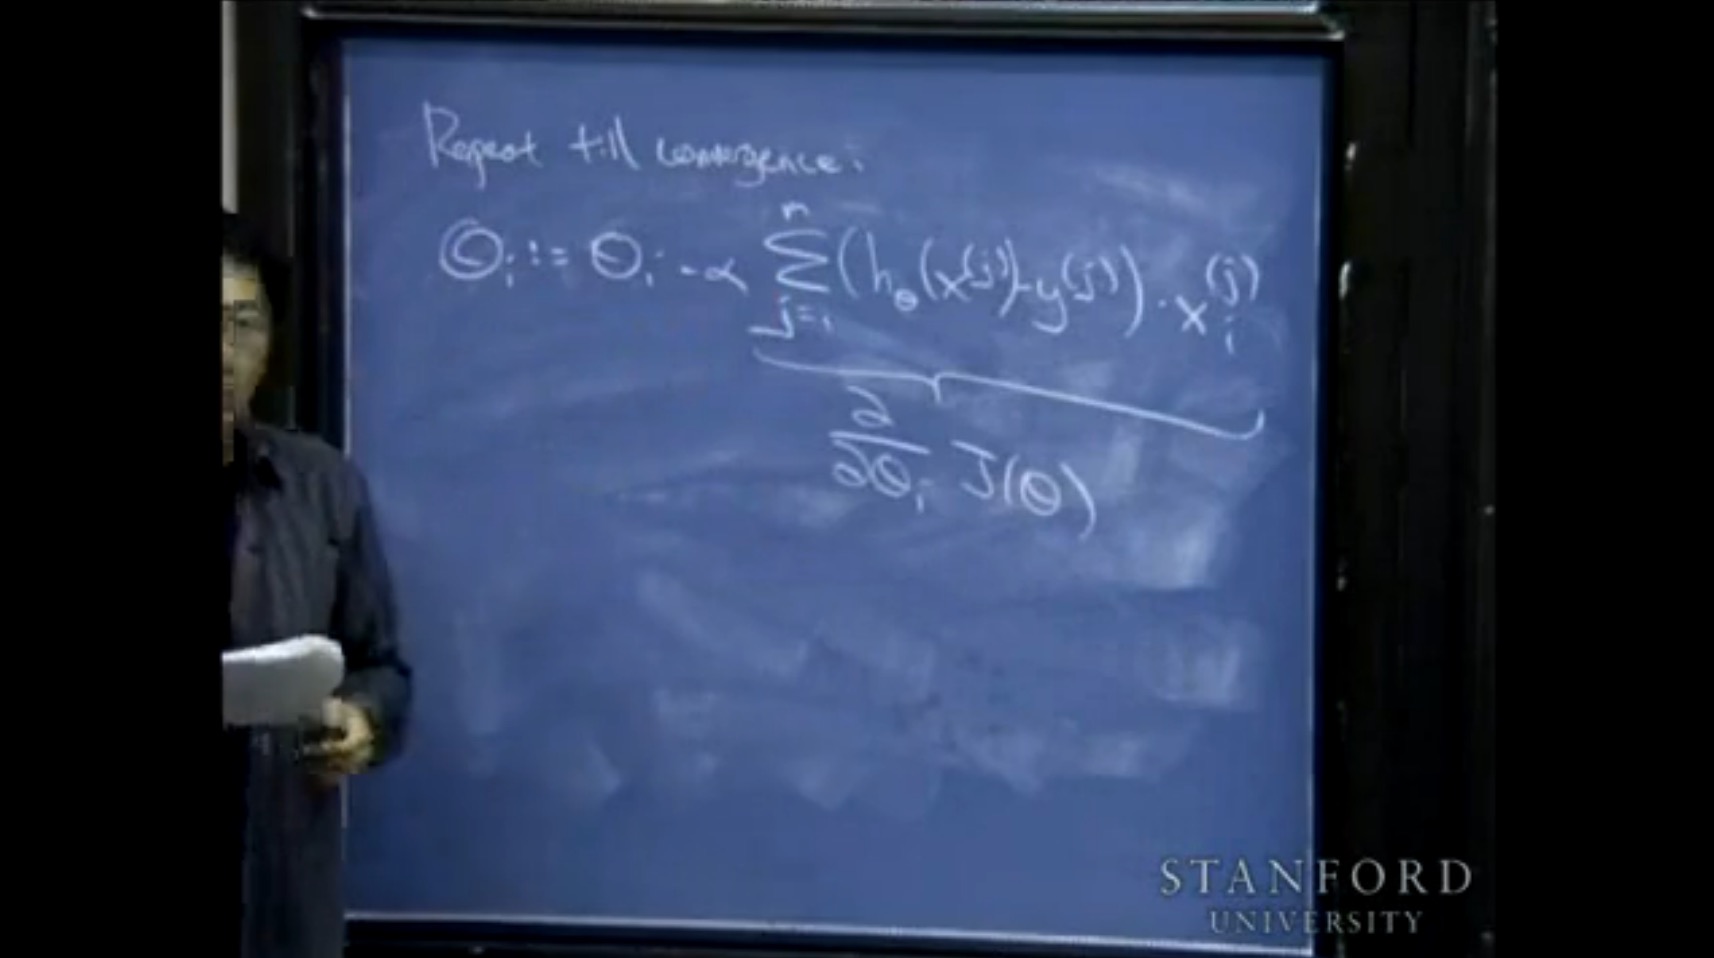 Repeat till convergence:
Θi := Θi - α Σ_{j=1}^{n} (hθ(x^(j)) - y^(j)) · x_i^(j)
∂/∂θi J(Θ)
STANFORD
UNIVERSITY